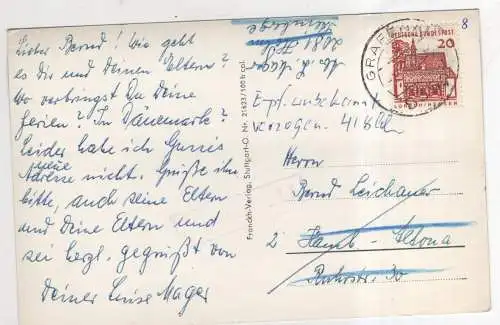 Lieber Bernd! Wie geht
es Dir und Deinen Eltern?
Wo verbringst Du Deine
Ferien? In Dänemark?
Leider habe ich
neue
Adresse nicht. Grüße ihn
bitte, auch seine Eltern
und Deine Eltern und
sei herzl. gegrüßt von
Deiner Luise Mager
Franckh-Verlag, Stuttgart-O. Nr. 21623/100 b col.
8
DEUTSCHE BUNDESPOST
20
LORSCH/HESSEN
GRAF
Empf. unbekannt
verzogen.
Herrn
Bernd Leichauer
2 Hamb-Altona
Ruhrstr. 30